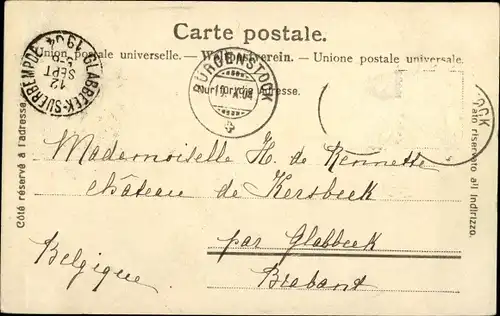 Carte postale.
Union postale universelle. — Weltpostverein. — Unione postale universale.
Nur für die Adresse.
Côté réservé à l'adresse.
Lato riservato all'indirizzo.
GLABBEEK-SUERBEMPDE
12
SEPT
1904
BÜRGENSTOCK
X.04
Mademoiselle H. de Rennette
Château de Kersbeek
par Glabbeek
Belgique
Brabant